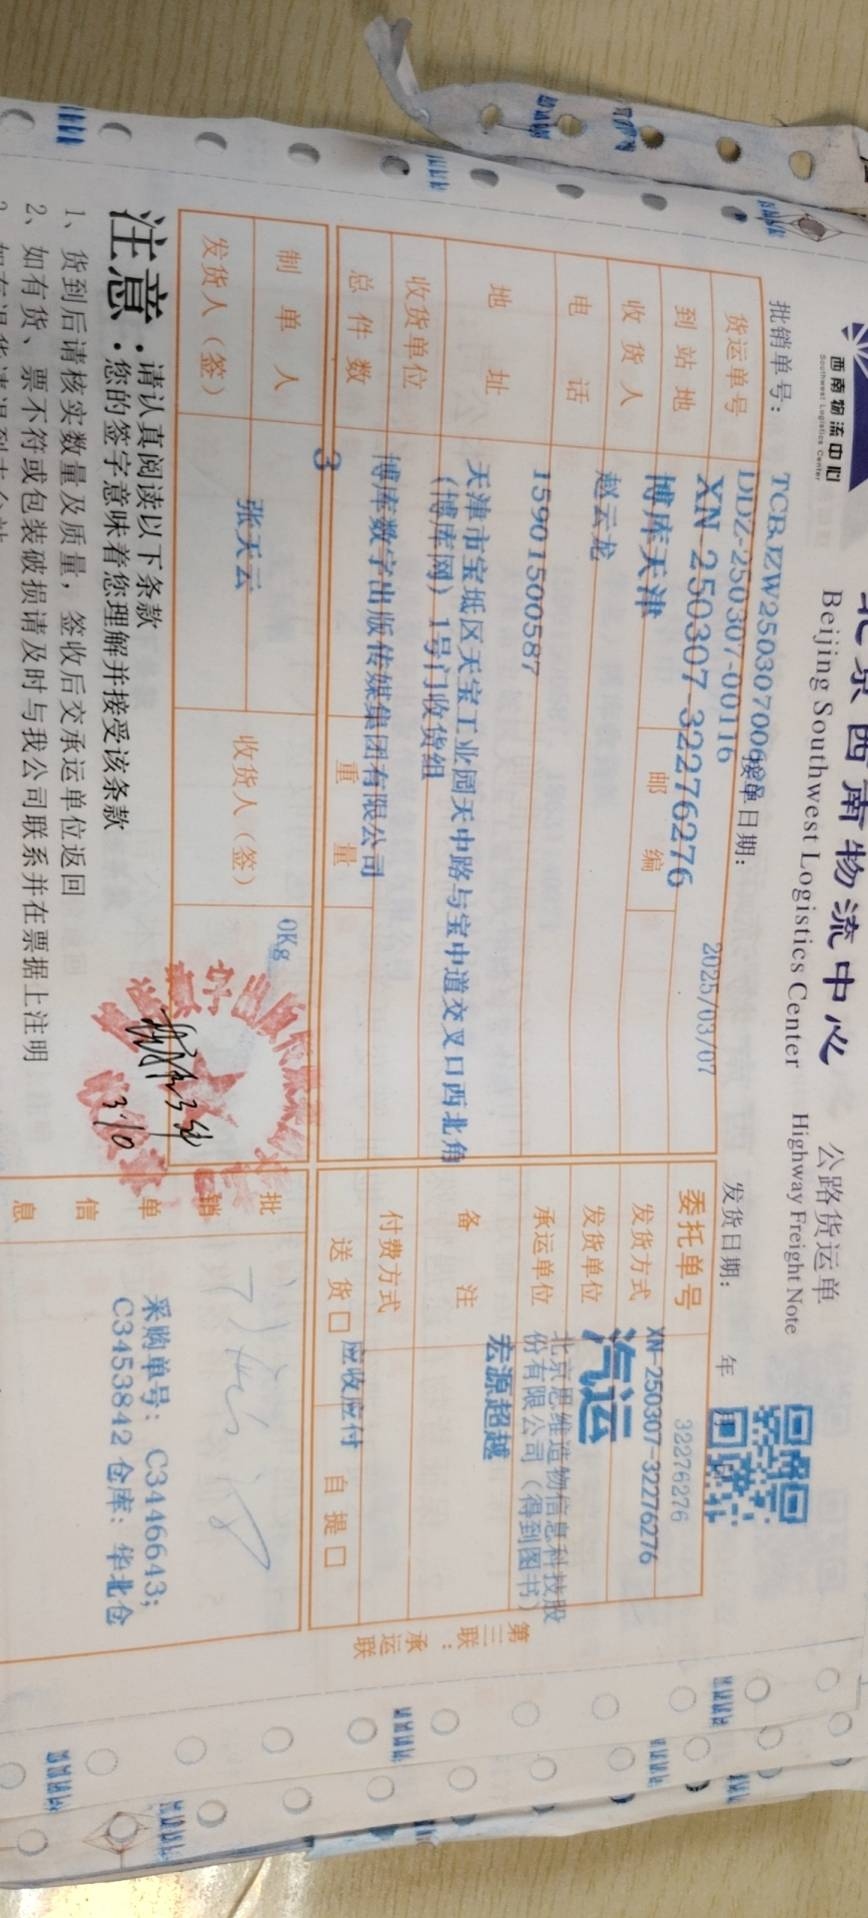 西南物流中心
Southwest Logistics Center
北京西南物流中心 公路货运单
Beijing Southwest Logistics Center Highway Freight Note
批销单号: TCBJZW2503070068
DDZ-250307-00116
接单日期: 2025/03/07
发货日期: 年 月
货运单号 XN-250307-32276276
到站地 博库天津 邮编
收货人 赵云龙
电话 15901500587
地址 天津市宝坻区天宝工业园天中路与宝中道交叉口西北角
(博库网) 1号门收货组
收货单位 博库数字出版传媒集团有限公司
总件数 3 重量 0Kg
委托单号 32276276
XN-250307-32276276
发货方式 汽运
发货单位 北京思维造物信息科技股
份有限公司 (得到图书)
承运单位 宏源超越
备注
付费方式 应收应付
送货□ 自提□
制单人 张天云
发货人(签) 收货人(签)
3/10
批销单信息
采购单号: C3446643;
C3453842 仓库: 华北仓
第三联:承运联
注意:请认真阅读以下条款
您的签字意味着您理解并接受该条款
1、货到后请核实数量及质量,签收后交承运单位返回
2、如有货、票不符或包装破损请及时与我公司联系并在票据上注明